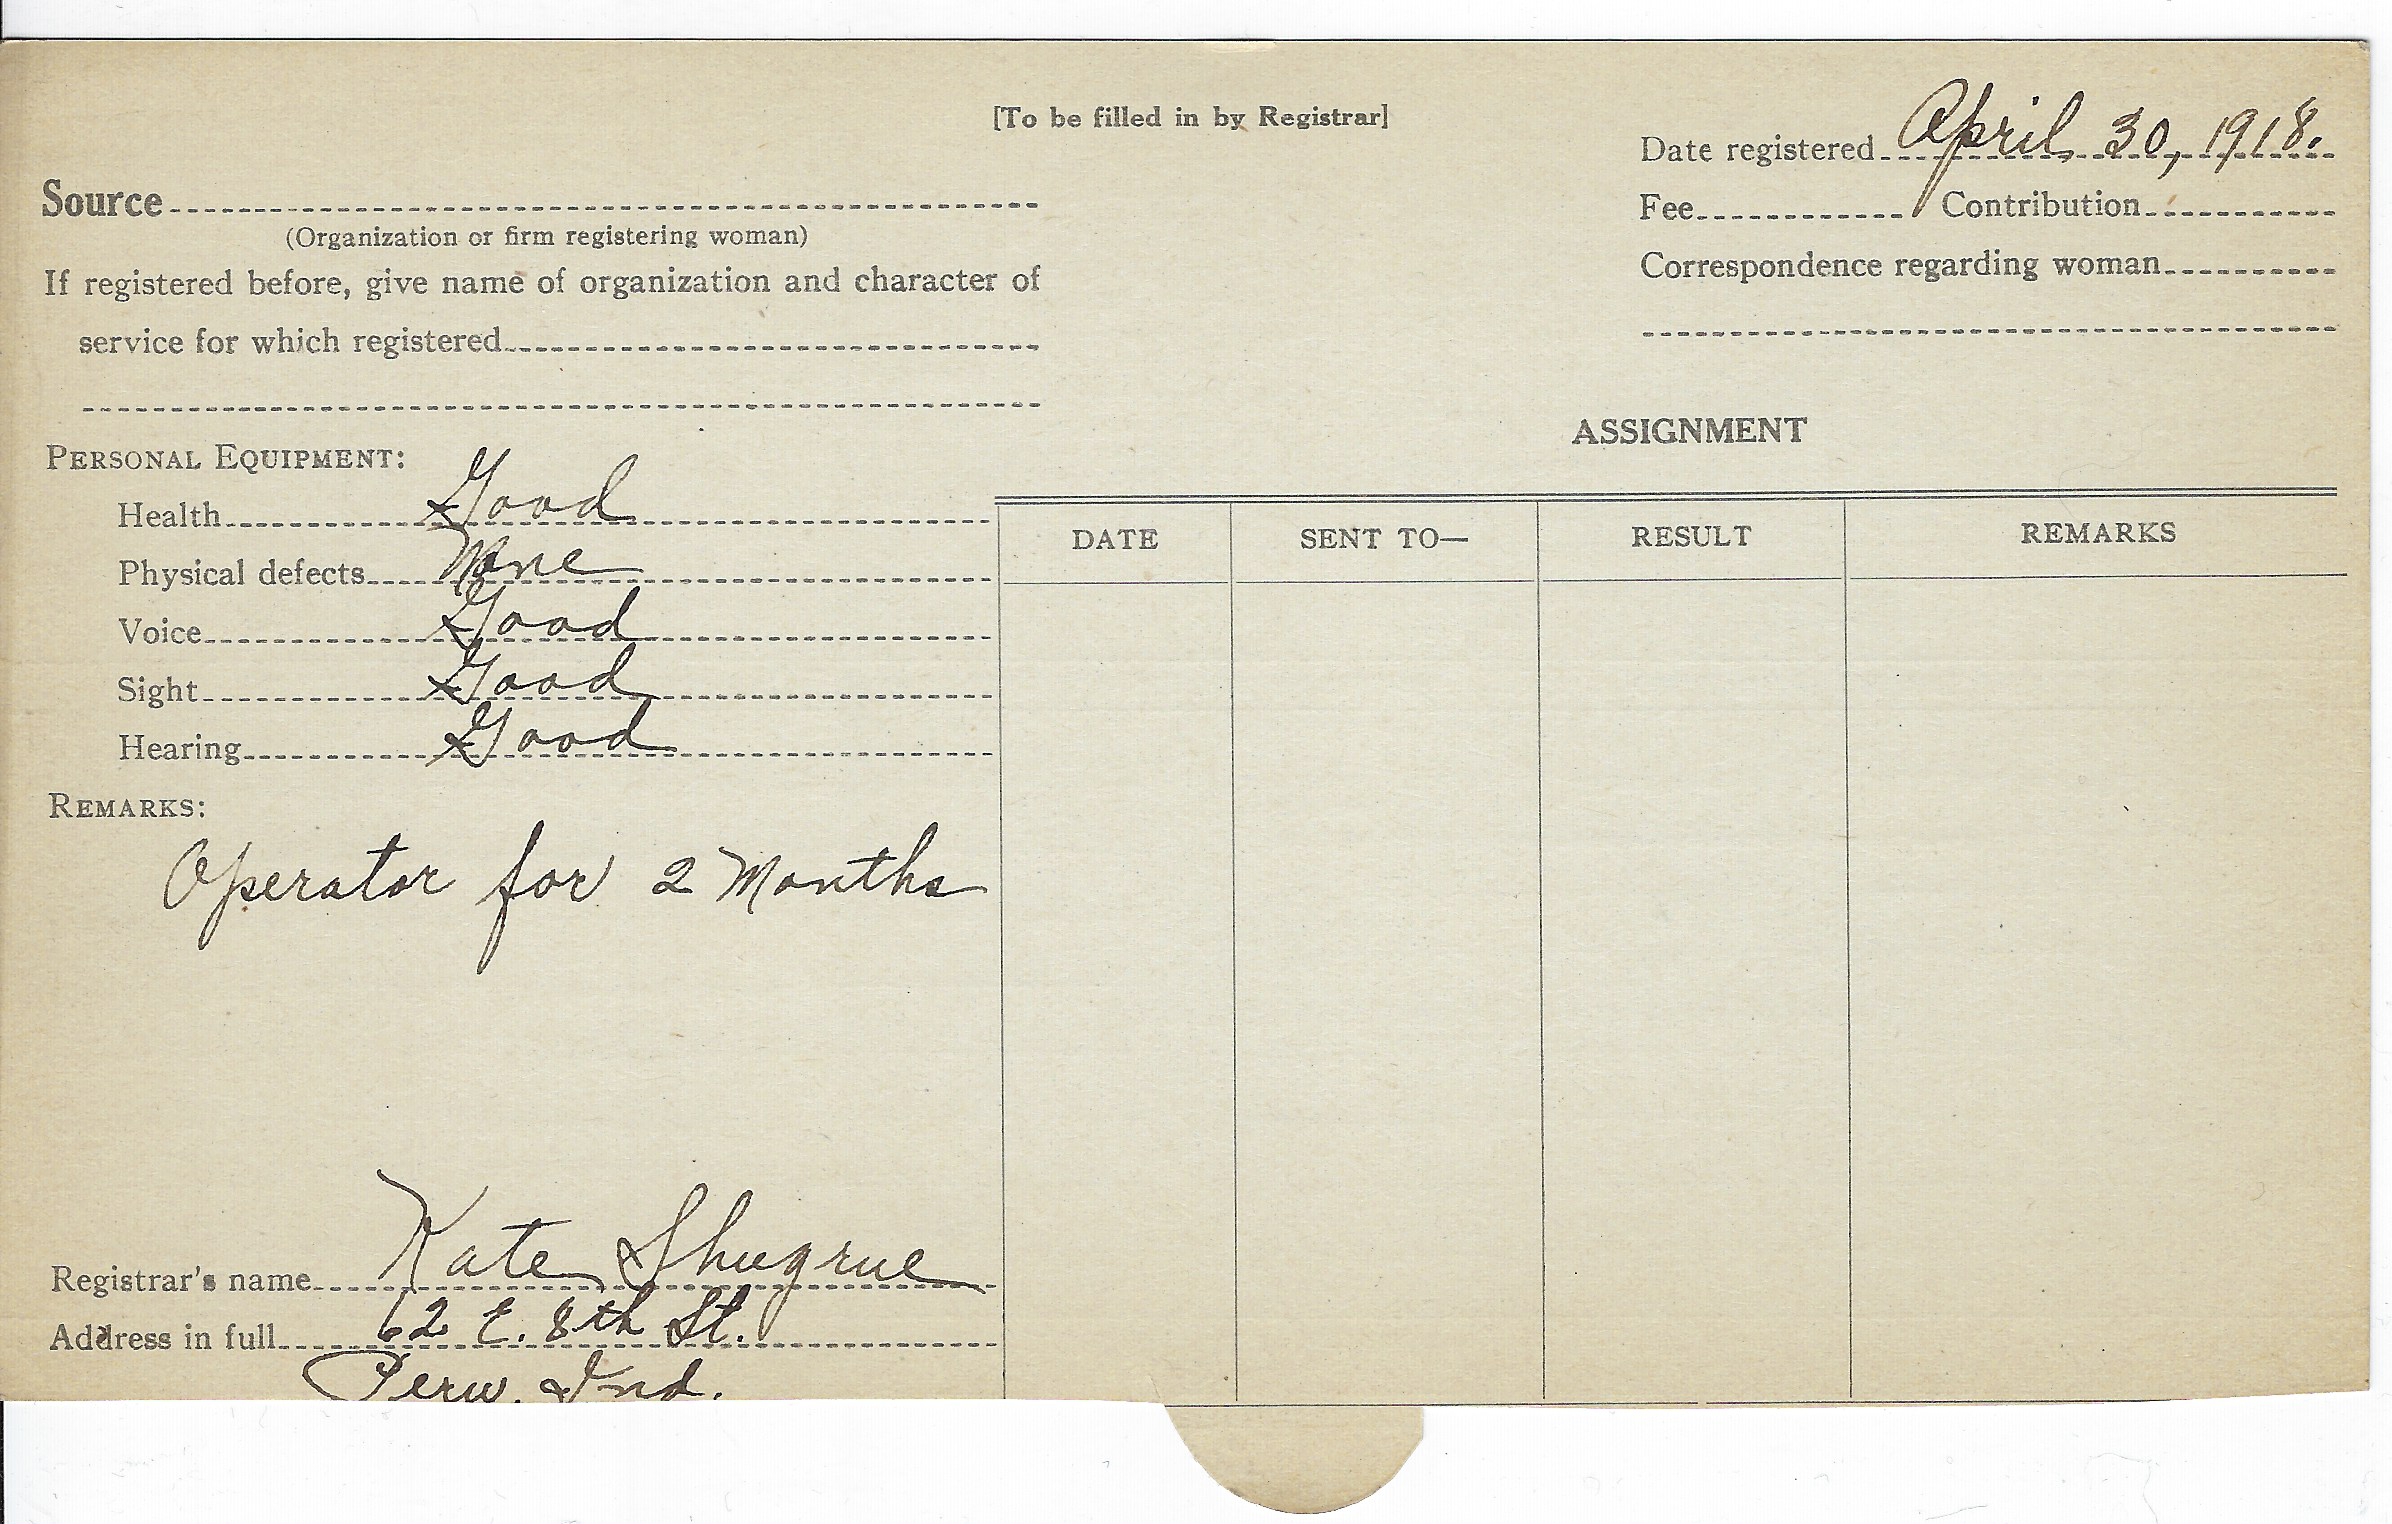 [To be filled in by Registrar]
Date registered April 30, 1918.
Source
(Organization or firm registering woman)
Fee Contribution
If registered before, give name of organization and character of
service for which registered
Correspondence regarding woman
PERSONAL EQUIPMENT:
Health Good
Physical defects None
Voice Good
Sight Good
Hearing Good
REMARKS:
Operator for 2 Months
Registrar's name Kate Shugrue
Address in full 62 E. 8th St.
Peru, Ind.
ASSIGNMENT
DATE SENT TO— RESULT REMARKS